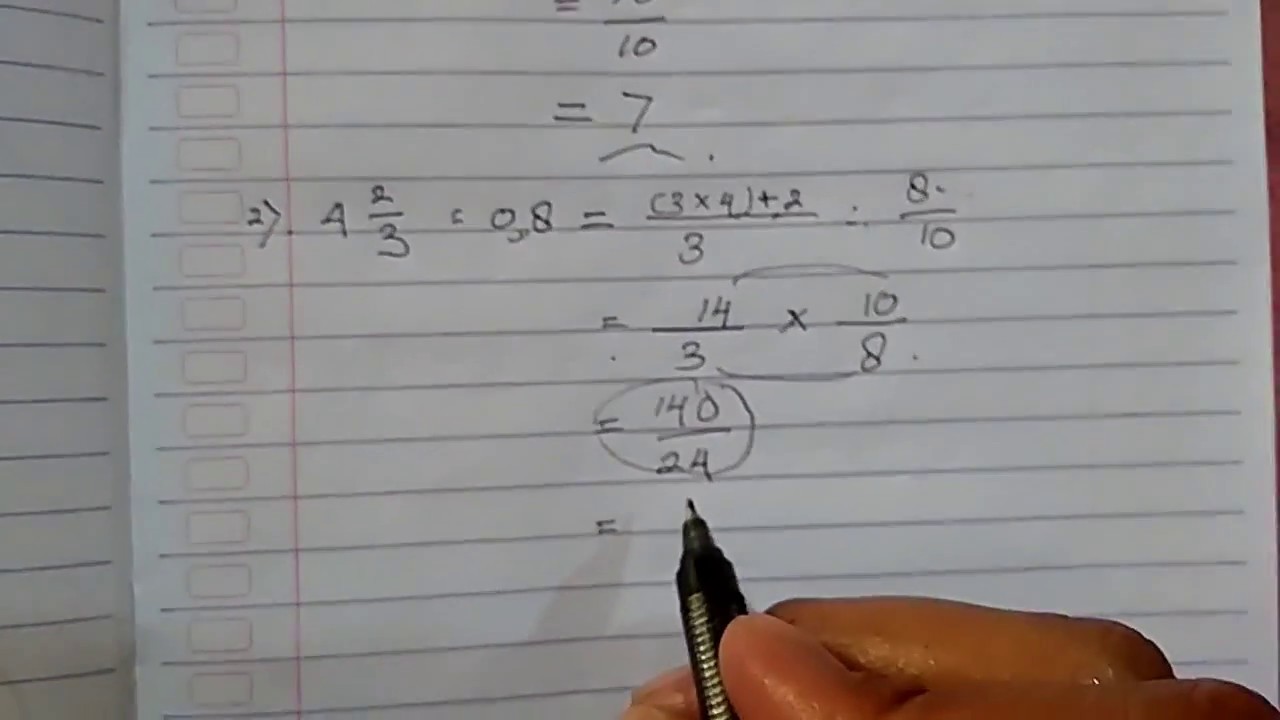 10
= 7
2) 4 2/3 : 0,8 = (3 x 4) + 2 / 3 : 8 / 10
= 14/3 x 10/8
= 140/24
=